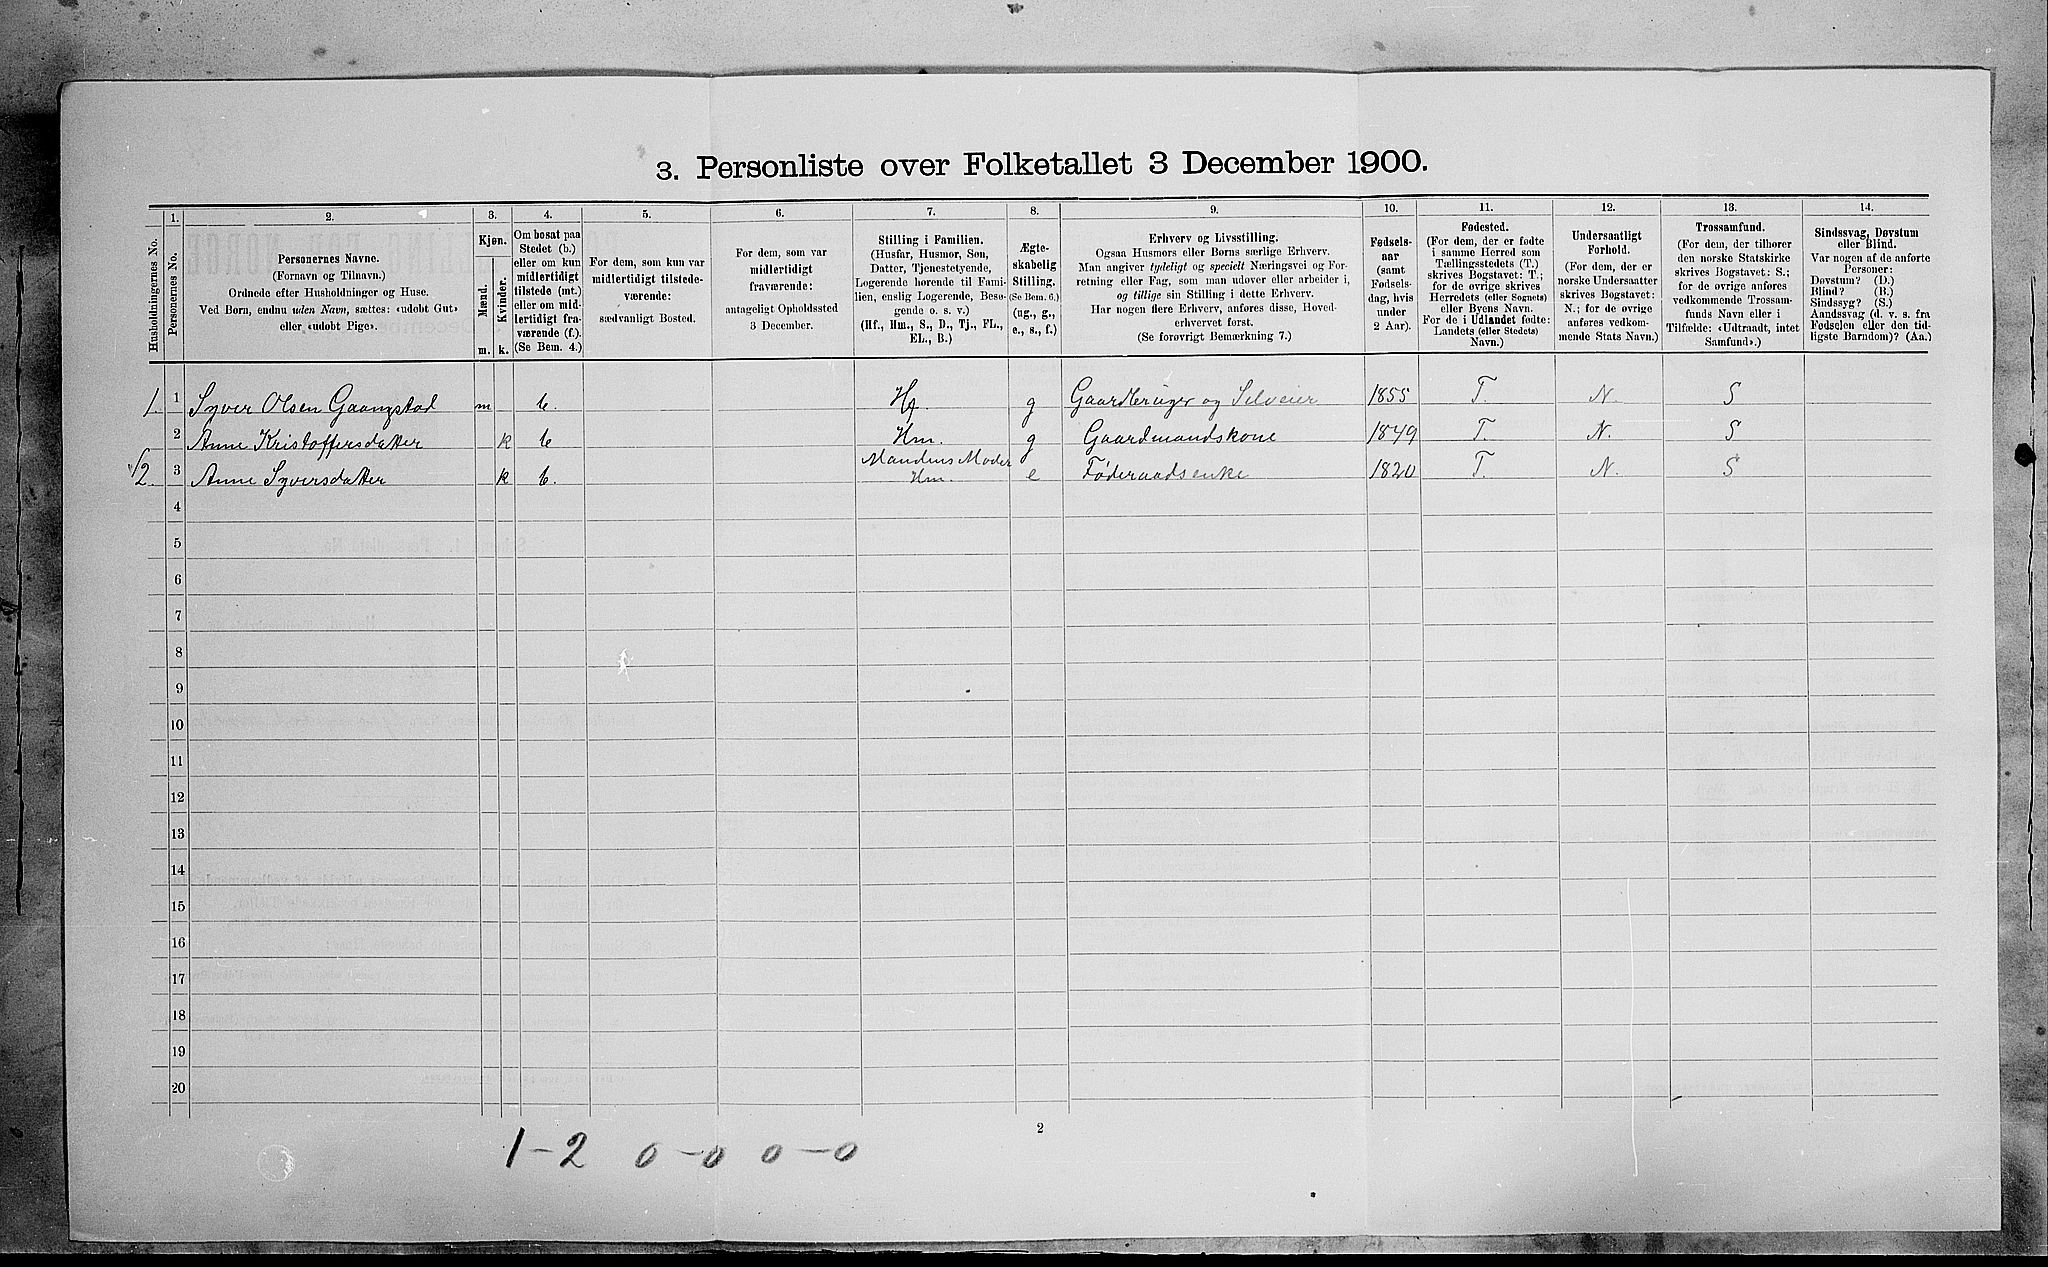 3. Personliste over Folketallet 3 December 1900.
Husholdningernes No.
1.
Personernes No.
2.
Personernes Navne.
(Fornavn og Tilnavn.)
Ordnede efter Husholdninger og Huse.
Ved Børn, endnu uden Navn, sættes: «udøbt Gut»
eller «udøbt Pige».
3.
Kjøn.
Mænd.
Kvinder.
m. k.
4.
Om bosat paa
Stedet (b.)
eller om kun
midlertidigt
tilstede (mt.)
eller om mid-
lertidigt fra-
værende (f.).
(Se Bem. 4.)
5.
For dem, som kun var
midlertidigt tilstede-
værende:
sædvanligt Bosted.
6.
For dem, som var
midlertidigt
fraværende:
antageligt Opholdssted
3 December.
7.
Stilling i Familien.
(Husfar, Husmor, Søn,
Datter, Tjenestetyende,
Logerende hørende til Fami-
lien, enslig Logerende, Besø-
gende o. s. v.)
(Hf., Hm., S., D., Tj., FL.,
EL., B.)
8.
Ægte-
skabelig
Stilling.
(Se Bem. 6.)
(ug., g.,
e., s., f.)
9.
Erhverv og Livsstilling.
Ogsaa Husmors eller Børns særlige Erhverv.
Man angiver tydeligt og specielt Næringsvei og For-
retning eller Fag, som man udøver eller arbeider i,
og tillige sin Stilling i dette Erhverv.
Har nogen flere Erhverv, anføres disse, Hoved-
erhvervet først.
(Se forøvrigt Bemærkning 7.)
10.
Fødsels-
aar
(samt
Fødsels-
dag, hvis
under
2 Aar).
11.
Fødested.
(For dem, der er fødte
i samme Herred som
Tællingsstedets (T.)
skrives Bogstavet: T.;
for de øvrige skrives
Herredets (eller Sognets)
eller Byens Navn.
For de i Udlandet fødte:
Landets (eller Stedets)
Navn.)
12.
Undersaatligt
Forhold.
(For dem, der er
norske Undersaatter
skrives Bogstavet:
N.; for de øvrige
anføres vedkom-
mende Stats Navn.)
13.
Trossamfund.
(For dem, der tilhører
den norske Statskirke
skrives Bogstavet: S.;
for de øvrige anføres
vedkommende Trossam-
funds Navn eller i
Tilfælde: «Udtraadt, intet
Samfund».)
14.
Sindssvag, Døvstum
eller Blind.
Var nogen af de anførte
Personer:
Døvstum? (D.)
Blind? (B.)
Sindssyg? (S.)
Aandssvag (d. v. s. fra
Fødselen eller den tid-
ligste Barndom)? (Aa.)
1. 1 Syver Olsen Gaangstad m b. Hf. g Gaardbruger og Selveier 1855 T. N. S
2 Anne Kristoffersdatter k b Hm. g Gaardmandskone 1849 T. N. S
2. 3 Anne Syversdatter k b. Mandens Moder Hm. e Føderaadsenke 1820 T. N. S
4
5
6
7
8
9
10
11
12
13
14
15
16
17
18
19
20
2
1-2 0-0 0-0